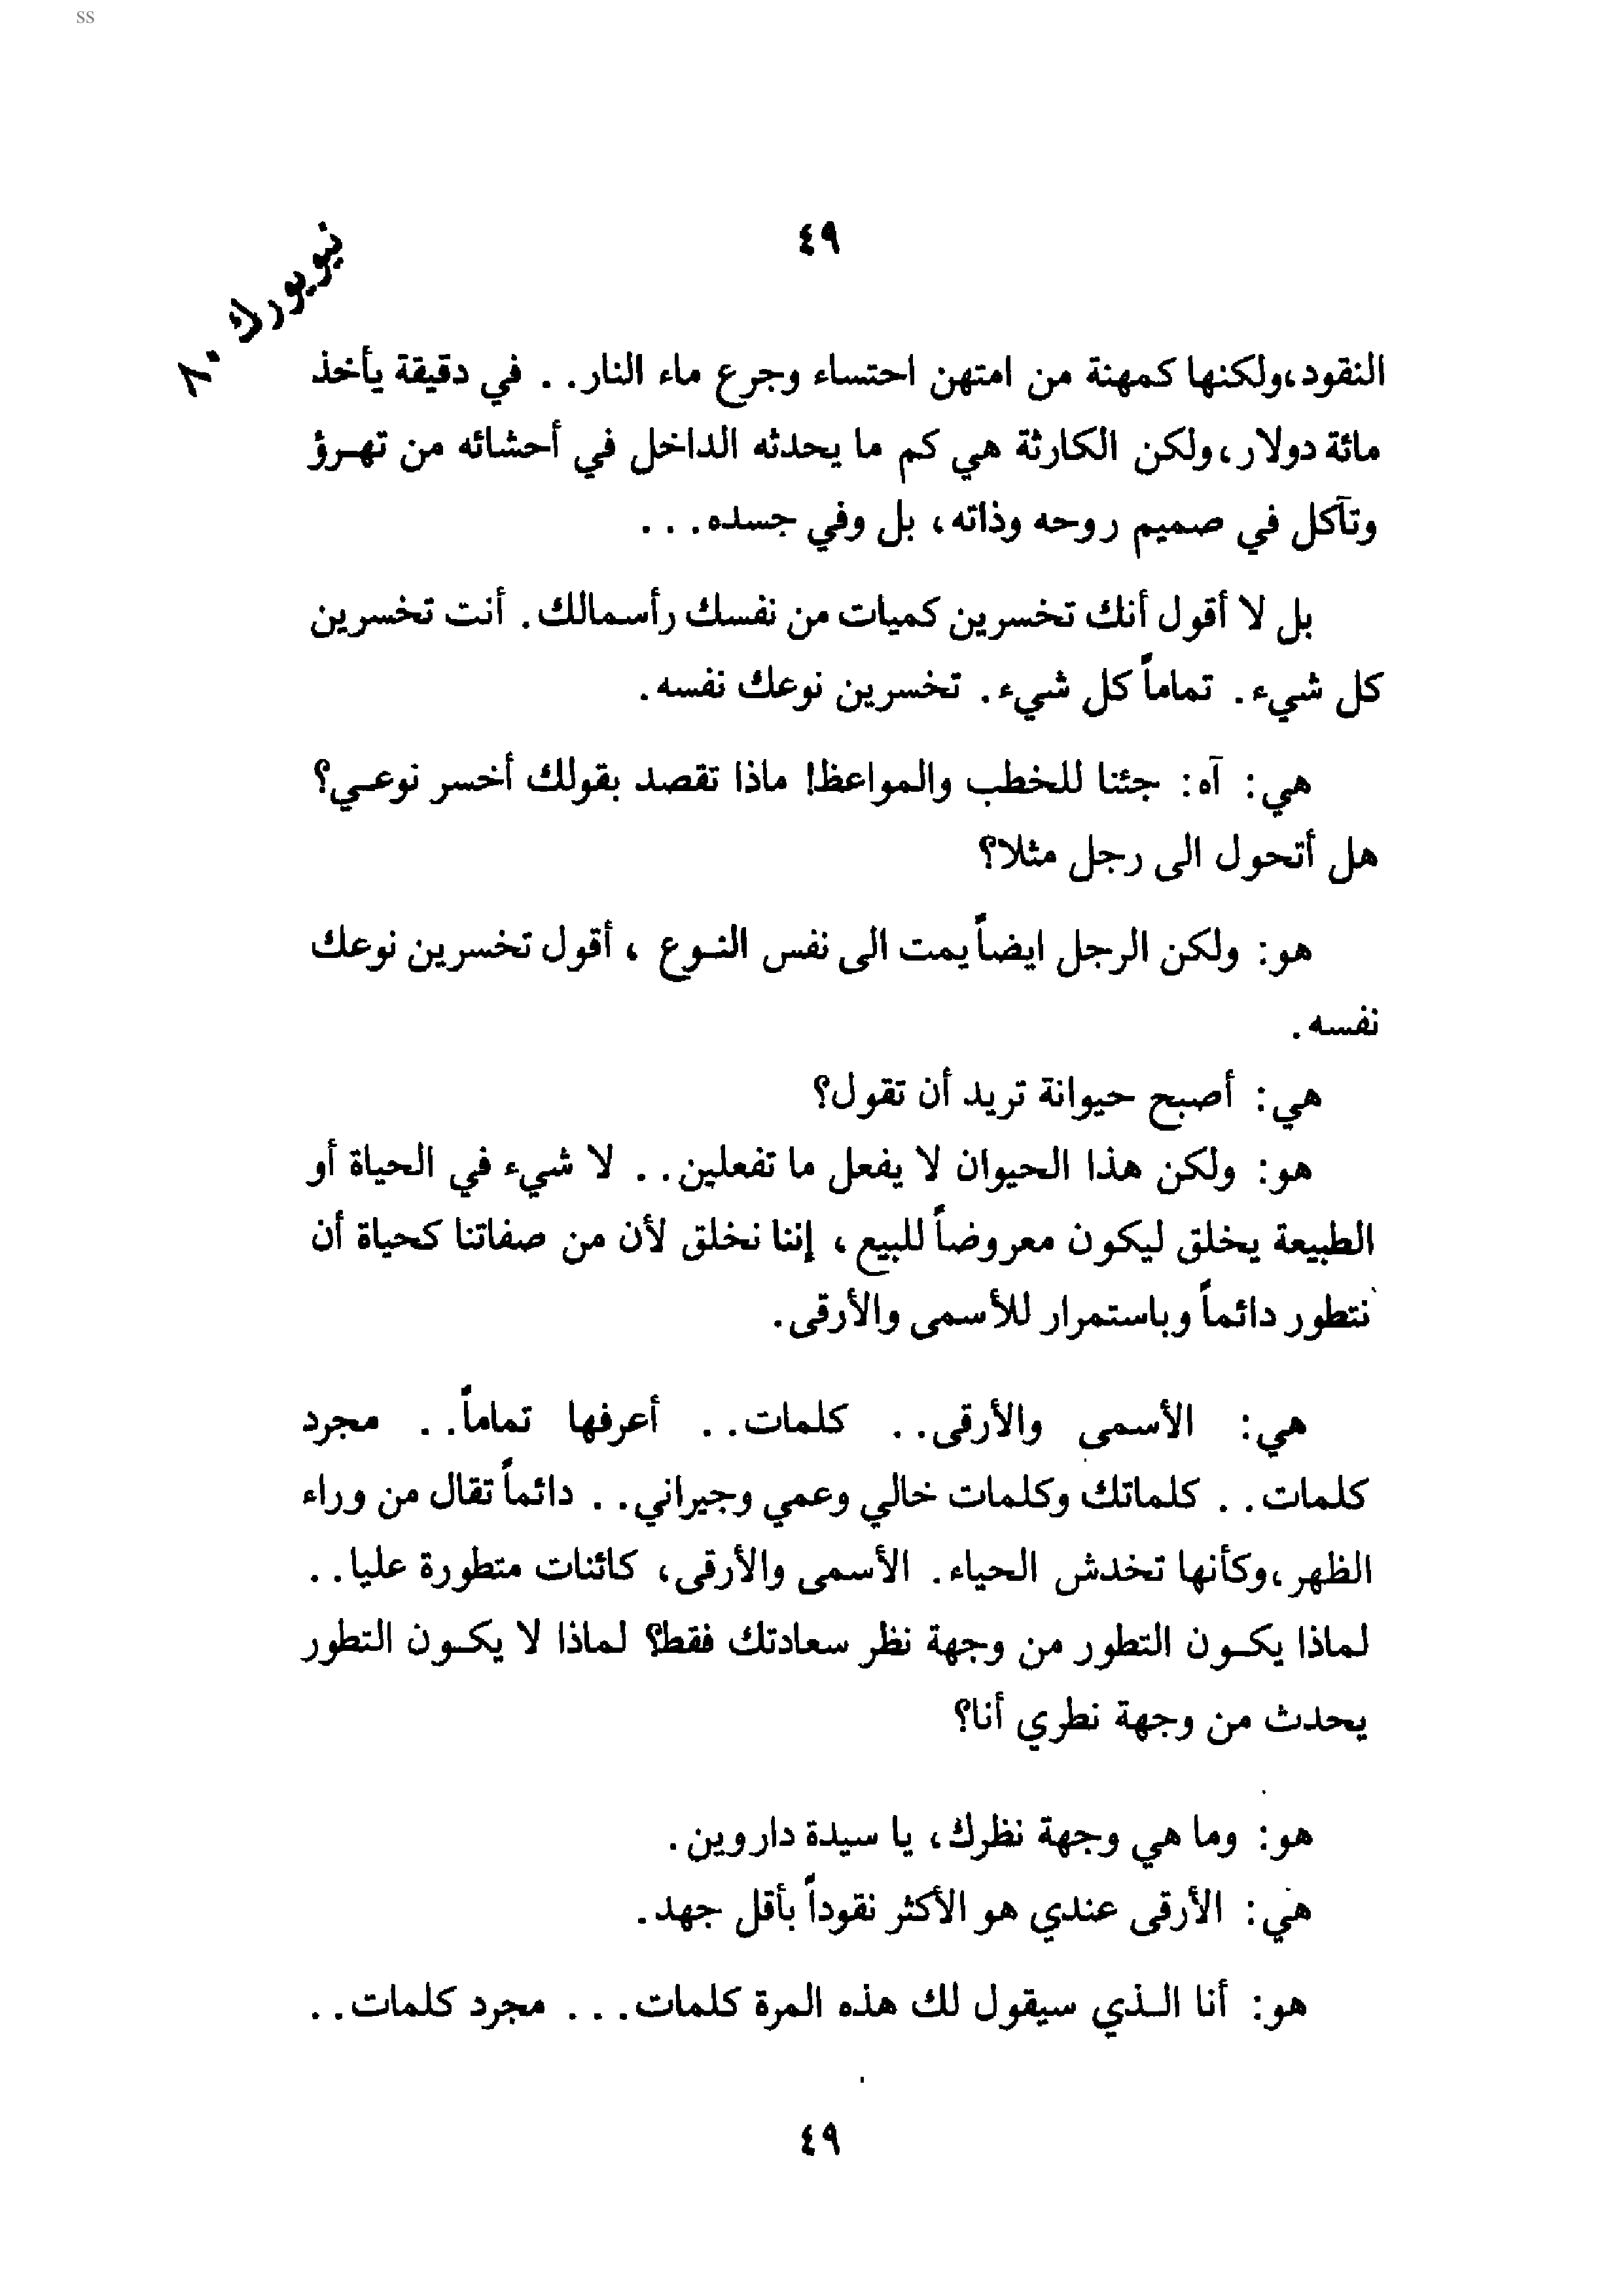 ss
٤٩
نيويورك ٨٠
النقود،ولكنها كمهنة من امتهن احتساء وجرع ماء النار. . في دقيقة يأخذ
مائة دولار،ولكن الكارثة هي كم ما يحدثه الداخل في أحشائه من تهرؤ
وتآكل في صميم روحه وذاته، بل وفي جسده. . .
بل لا أقول أنك تخسرين كميات من نفسك رأسمالك. أنت تخسرين
كل شيء. تماماً كل شيء. تخسرين نوعك نفسه.
هي: آه: جئنا للخطب والمواعظ! ماذا تقصد بقولك أخسر نوعي؟
هل أتحول الى رجل مثلا؟
هو: ولكن الرجل ايضاً يمت الى نفس النوع ، أقول تخسرين نوعك
نفسه.
هي: أصبح حيوانة تريد أن تقول؟
هو: ولكن هذا الحيوان لا يفعل ما تفعلين. . لا شيء في الحياة أو
الطبيعة يخلق ليكون معروضاً للبيع، إننا نخلق لأن من صفاتنا كحياة أن
نتطور دائماً وباستمرار للأسمى والأرقى.
هي: الأسمى والأرقى. . كلمات. . أعرفها تماماً. . مجرد
كلمات. . كلماتك وكلمات خالي وعمي وجيراني. . دائماً تقال من وراء
الظهر،وكأنها تخدش الحياء. الأسمى والأرقى، كائنات متطورة عليا. .
لماذا يكون التطور من وجهة نظر سعادتك فقط؟ لماذا لا يكون التطور
يحدث من وجهة نطري أنا؟
هو: وما هي وجهة نظرك، يا سيدة داروين.
هي: الأرقى عندي هو الأكثر نقوداً بأقل جهد.
هو: أنا الذي سيقول لك هذه المرة كلمات. . . مجرد كلمات. .
٤٩